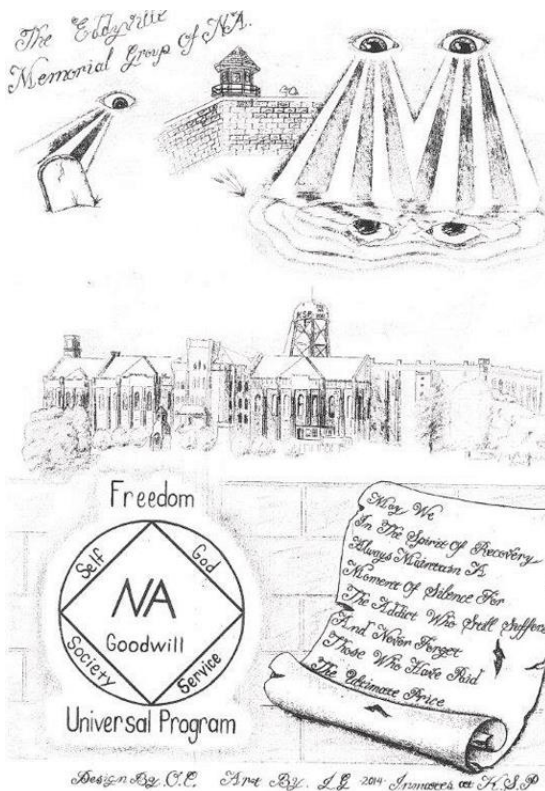 The Eddyville
Memorial Group Of NA.
Freedom
Self
God
NA
Goodwill
Society
Service
Universal Program
May We
In The Spirit Of Recovery
Always Maintain A
Moment Of Silence For
The Addict Who Still Suffers
And Never Forget
Those Who Have Paid
The Ultimate Price
Design By O.E. Art By J.G 2014 Inmates at K.S.P